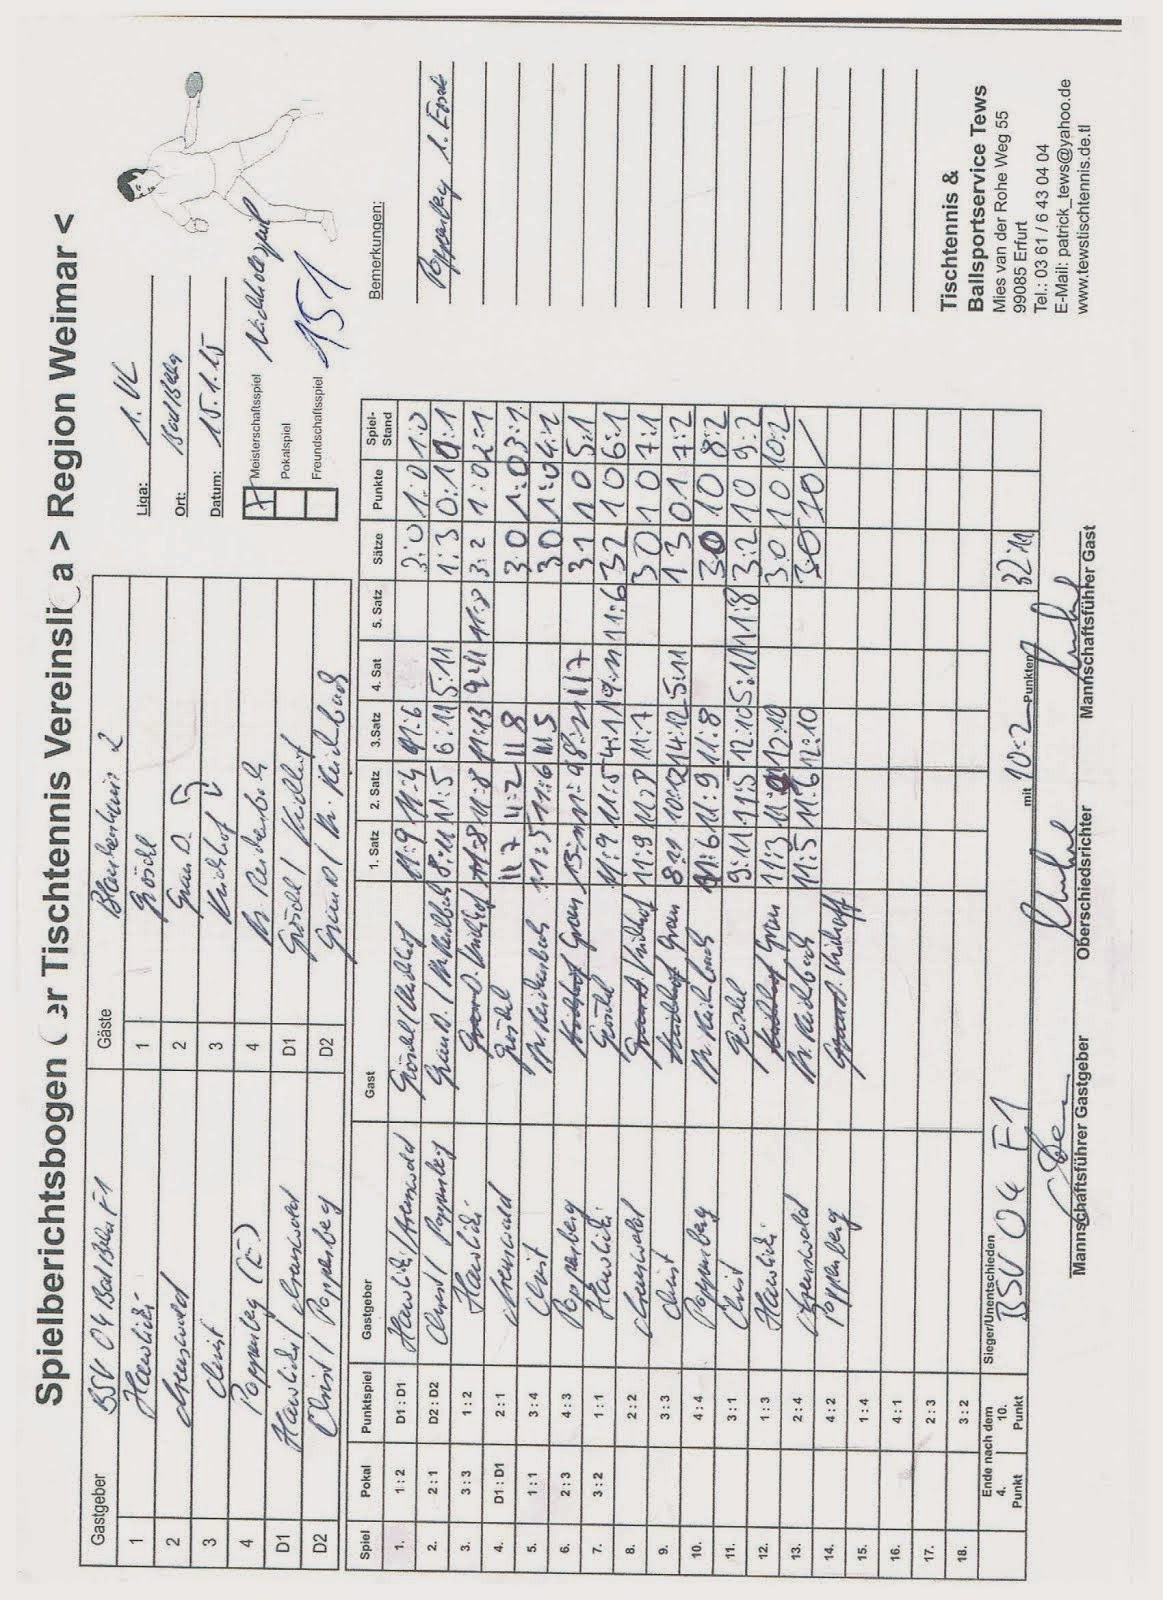 Spielberichtsbogen er Tischtennis Vereinsli a > Region Weimar <
Gastgeber BSV 04 Bad Berka F1 Gäste Blankenhain 2
1 Hawlicki 1 Göschl
2 2 Gram D.
3 Christ 3 Kirchhof
4 Poppenberg (E) 4
D1 Hawlicki / D1 Göschl / Kirchhof
D2 Christ / Poppenberg D2 Gram D /
Liga: 1. VL
Ort: Bad Berka
Datum: 15.1.15
X Meisterschaftsspiel Nachholspiel
Pokalspiel
Freundschaftsspiel 151
Bemerkungen:
Poppenberg 1. Ersatz
Spiel Pokal Punktspiel Gastgeber Gast 1. Satz 2. Satz 3.Satz 4. Sat 5. Satz Sätze Punkte Spiel-Stand
1. 1 : 2 D1 : D1 Hawlicki / Göschl / Kirchhof 11:9 11:4 11:6 3:0 1:0 1:0
2. 2 : 1 D2 : D2 Christ / Poppenberg Gram D. / 8:11 11:5 6:11 5:11 1:3 0:1 1:1
3. 3 : 3 1 : 2 Hawlicki Kirchhof 11:8 11:8 11:13 9:11 11:8 3:2 1:0 2:1
4. D1 : D1 2 : 1 Göschl 11 7 11:2 11 8 3:0 1:0 3:1
5. 1 : 1 3 : 4 Christ 11:5 11:6 11 5 3 0 1:0 4:1
6. 2 : 3 4 : 3 Poppenberg Gram 11:9 8:11 11 7 3 1 1 0 5:1
7. 3 : 2 1 : 1 Hawlicki Göschl 11:9 11:5 4:11 9:11 11:6 3 2 1 0 6:1
8. 2 : 2 Kirchhof 11:9 11:8 11:7 3 0 1 0 7:1
9. 3 : 3 Christ Gram 8:11 14:12 5:11 1 3 0 1 7:2
10. 4 : 4 Poppenberg 11:6 11:9 11:8 3 0 1 0 8:2
11. 3 : 1 Christ Göschl 9:11 11:5 12:10 5:11 11:8 3:2 1 0 9:2
12. 1 : 3 Hawlicki Gram 11:3 11:9 12:10 3:0 1 0 10:2
13. 2 : 4 11:5 11:6 12:10 3:0 1 0 /
14. 4 : 2 Poppenberg Kirchhoff
15. 1 : 4
16. 4 : 1
17. 2 : 3
18. 3 : 2
Ende nach dem
4. 10.
Punkt Punkt
Sieger/Unentschieden
BSV 04 F1 mit 10:2 Punkten 32:11
Mannschaftsführer Gastgeber Oberschiedsrichter Mannschaftsführer Gast
Tischtennis &
Ballsportservice Tews
Mies van der Rohe Weg 55
99085 Erfurt
Tel.: 03 61 / 6 43 04 04
E-Mail: patrick_tews@yahoo.de
www.tewstischtennis.de.tl